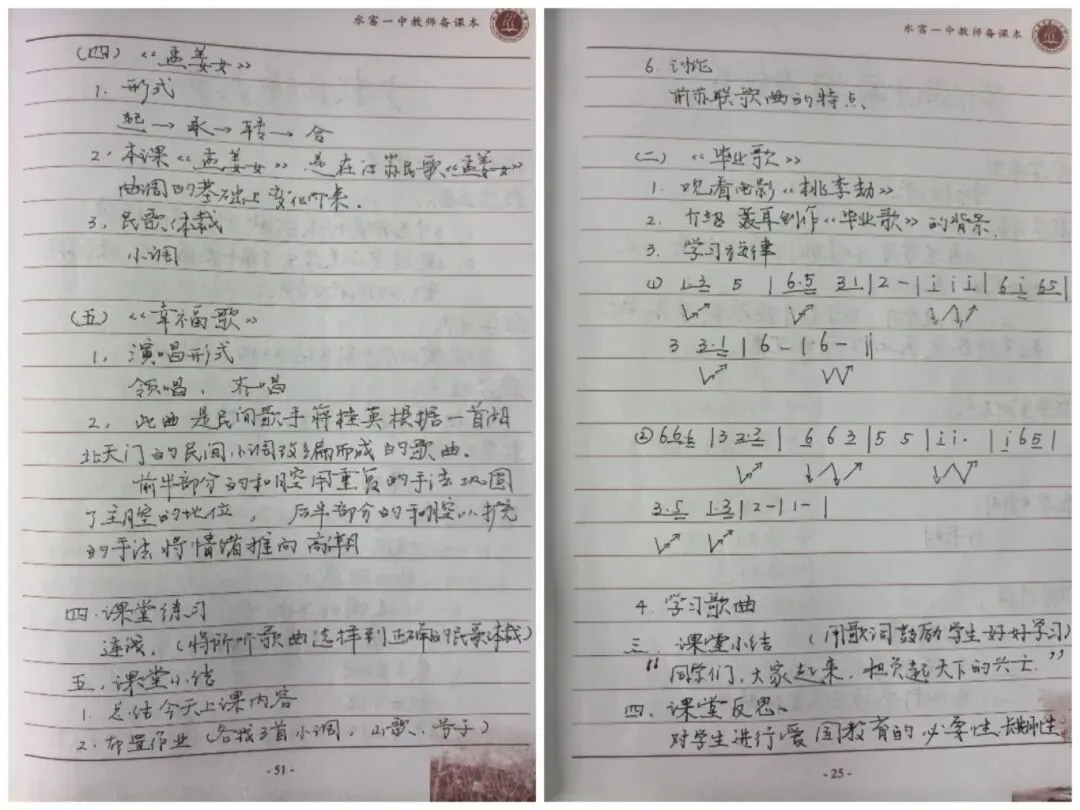 水富一中教师备课本
(四)《孟姜女》
1. 形式
起→承→转→合
2. 本课《孟姜女》是在江苏民歌《孟姜女》
曲调的基础上变化而来.
3. 民歌体裁
小调
(五)《幸福歌》
1. 演唱形式
领唱、齐唱
2. 此曲是民间歌手蒋桂英根据一首湖
北天门的民间小调改编而成的歌曲.
前半部分的和腔用重复的手法巩固
了主腔的地位, 后半部分的和腔以扩充
的手法将情绪推向高潮
四.课堂练习
连线.(将所听歌曲选择到正确的民歌体裁)
五.课堂小结
1. 总结今天上课内容
2. 布置作业(各找3首小调、山歌、号子)
-51-
水富一中教师备课本
6. 讨论
前苏联歌曲的特点、
(二)《毕业歌》
1. 观看电影《桃李劫》
2. 介绍聂耳创作《毕业歌》的背景.
3. 学习旋律
(1) 1.3 5 | 6.5 3 1 | 2 - | i i i | 6.i 6 5 |
3 3.1 | 6 - | 6 - ‖
(2) 6.6 6 | 3 2.3 | 6 6 3 | 5 5 | i i· | i 6 5 |
3.5 1.3 | 2 - | 1 - |
4. 学习歌曲
三. 课堂小结 (用歌词鼓励学生好好学习)
“同学们,大家起来,担负起天下的兴亡.”
四. 课堂反思、
对学生进行爱国教育的必要性、长期性.
-25-